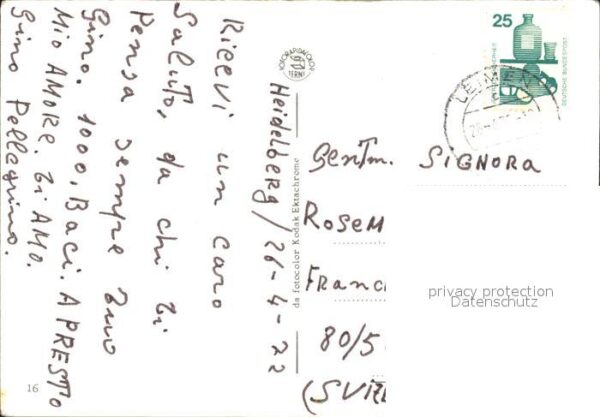 Heidelberg / 26-4-72
Ricevi un caro
saluto, da chi ti
Pensa sempre tuo
Gino. 1000. Baci. A PRESTO
MIO AMORE. TI AMO.
Gino Pellegrino.
25
DEUTSCHE BUNDESPOST
LEIMEN
Gentm. SIGNORA
ROSEM
FRANC
80/5
(SVIZ
da fotocolor Kodak Ektachrome
TERNI
16
privacy protection
Datenschutz